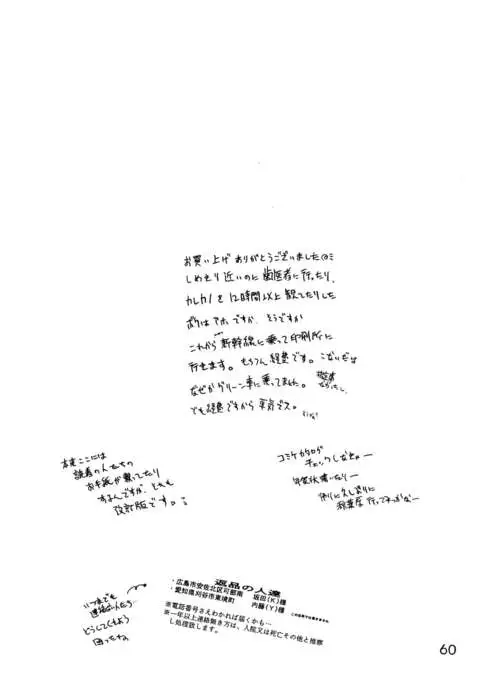 お買い上げ ありがとうございました
しめきり近いのに歯医者に行ったり、
カレカノを12時間以上観てたりした
ボクはアホですか、そうですか
これから新幹線に乗って印刷所に
行きます。もちろん経費です。こないだは
なぜかグリーン車に乗ってました。
でも経費ですから平気でス。
本来ここには
読者の人たちの
お手紙が載ってたり
するんですが、とれも
改訂版です。
コミケカタログ
チェックしなきゃー
年賀状書いたりー
秋葉原行ってみっかなー
いつまでも
連絡ない人たち…
どうしてくれよう
困ったね
返品の人達
・広島市安佐北区可部南 坂田(K)様
・愛知県刈谷市東境町 内藤(Y)様
※電話番号さえわかれば届くかも…
※一年以上連絡無き方は、入院又は死亡その他と推察
し処理致します。
60